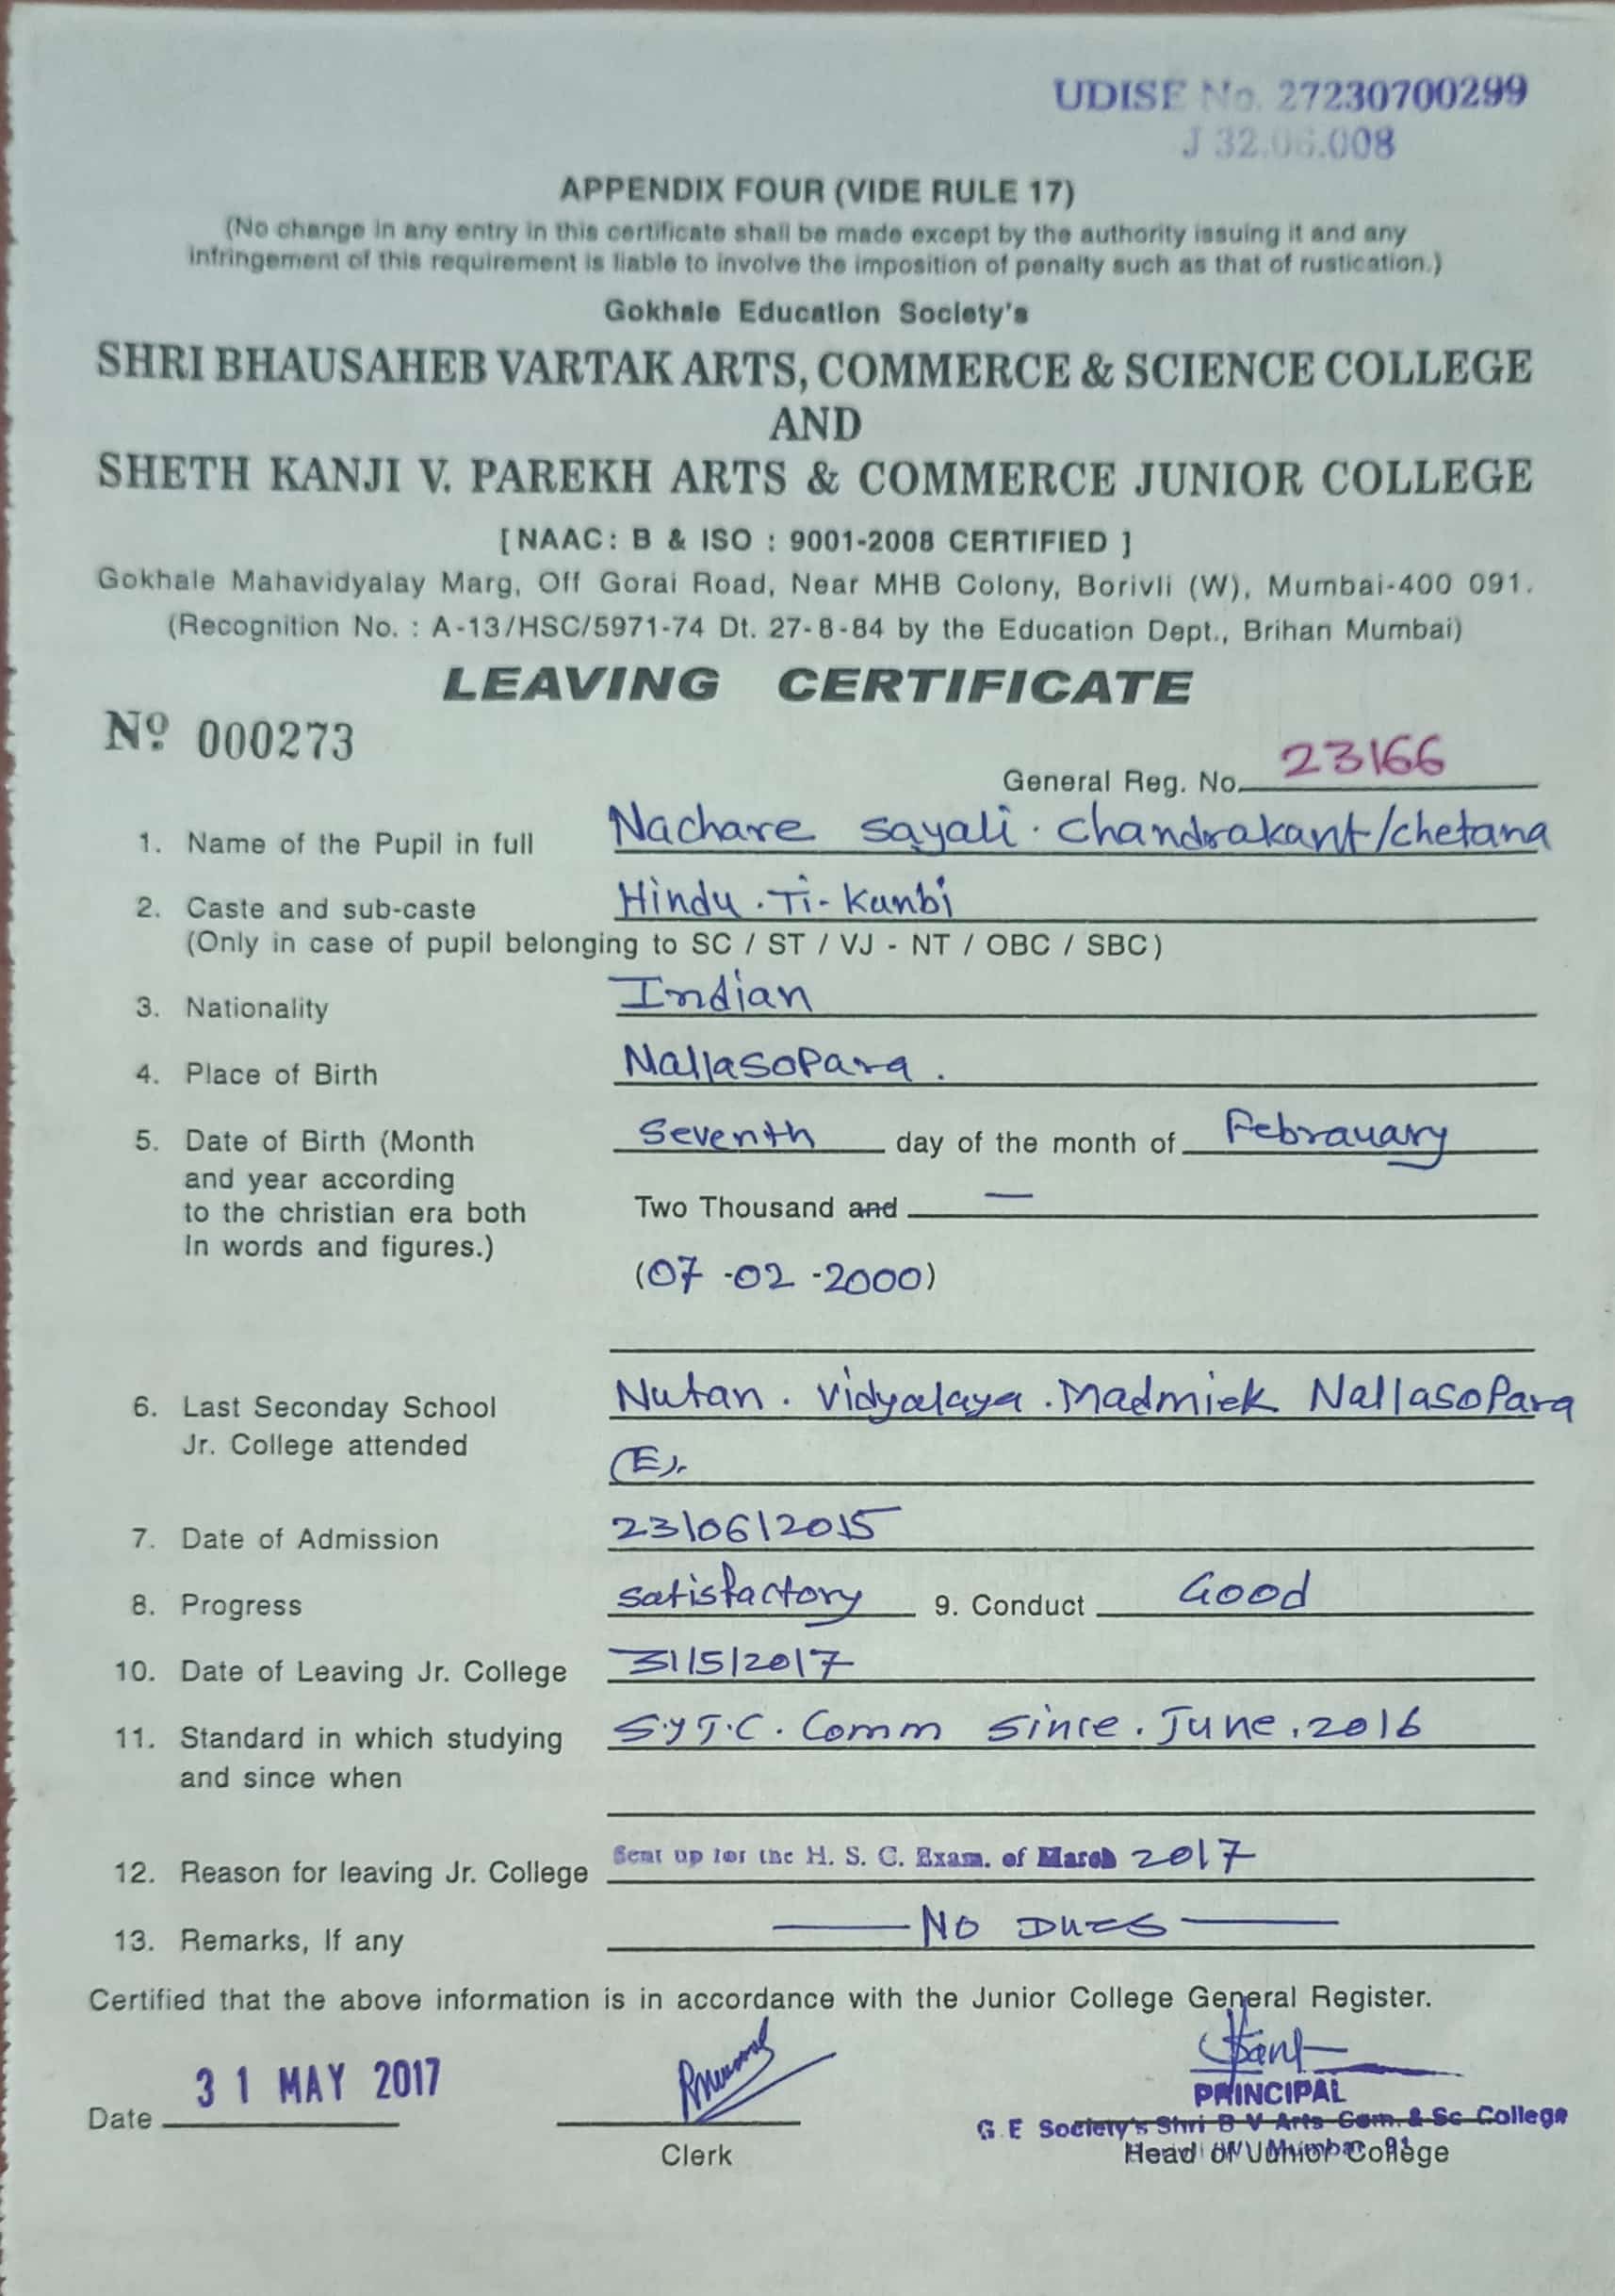 UDISE No. 27230700299
J 32.06.008
APPENDIX FOUR (VIDE RULE 17)
(No change in any entry in this certificate shall be made except by the authority issuing it and any
infringement of this requirement is liable to involve the imposition of penalty such as that of rustication.)
Gokhale Education Society's
SHRI BHAUSAHEB VARTAK ARTS, COMMERCE & SCIENCE COLLEGE
AND
SHETH KANJI V. PAREKH ARTS & COMMERCE JUNIOR COLLEGE
[ NAAC : B & ISO : 9001-2008 CERTIFIED ]
Gokhale Mahavidyalay Marg, Off Gorai Road, Near MHB Colony, Borivli (W), Mumbai-400 091.
(Recognition No. : A-13/HSC/5971-74 Dt. 27-8-84 by the Education Dept., Brihan Mumbai)
LEAVING CERTIFICATE
Nº 000273
General Reg. No. 23166
1. Name of the Pupil in full Nachare Sayali. Chandrakant/Chetana
2. Caste and sub-caste Hindu. Ti- Kunbi
(Only in case of pupil belonging to SC / ST / VJ - NT / OBC / SBC)
3. Nationality Indian
4. Place of Birth Nallasopara.
5. Date of Birth (Month Seventh day of the month of Febrauary
and year according
to the christian era both Two Thousand and —
In words and figures.)
(07-02-2000)
6. Last Seconday School Nutan. Vidyalaya. Madmiek Nallasopara
Jr. College attended (E).
7. Date of Admission 23/06/2015
8. Progress Satisfactory 9. Conduct Good
10. Date of Leaving Jr. College 31/5/2017
11. Standard in which studying S.Y.J.C. Comm Since. June, 2016
and since when
12. Reason for leaving Jr. College Sent up for the H. S. C. Exam. of March 2017
13. Remarks, If any — NO DUES —
Certified that the above information is in accordance with the Junior College General Register.
Date 31 MAY 2017
Clerk
PRINCIPAL
G. E Society's Shri B V Arts Com. & Sc College
Head of Junior College